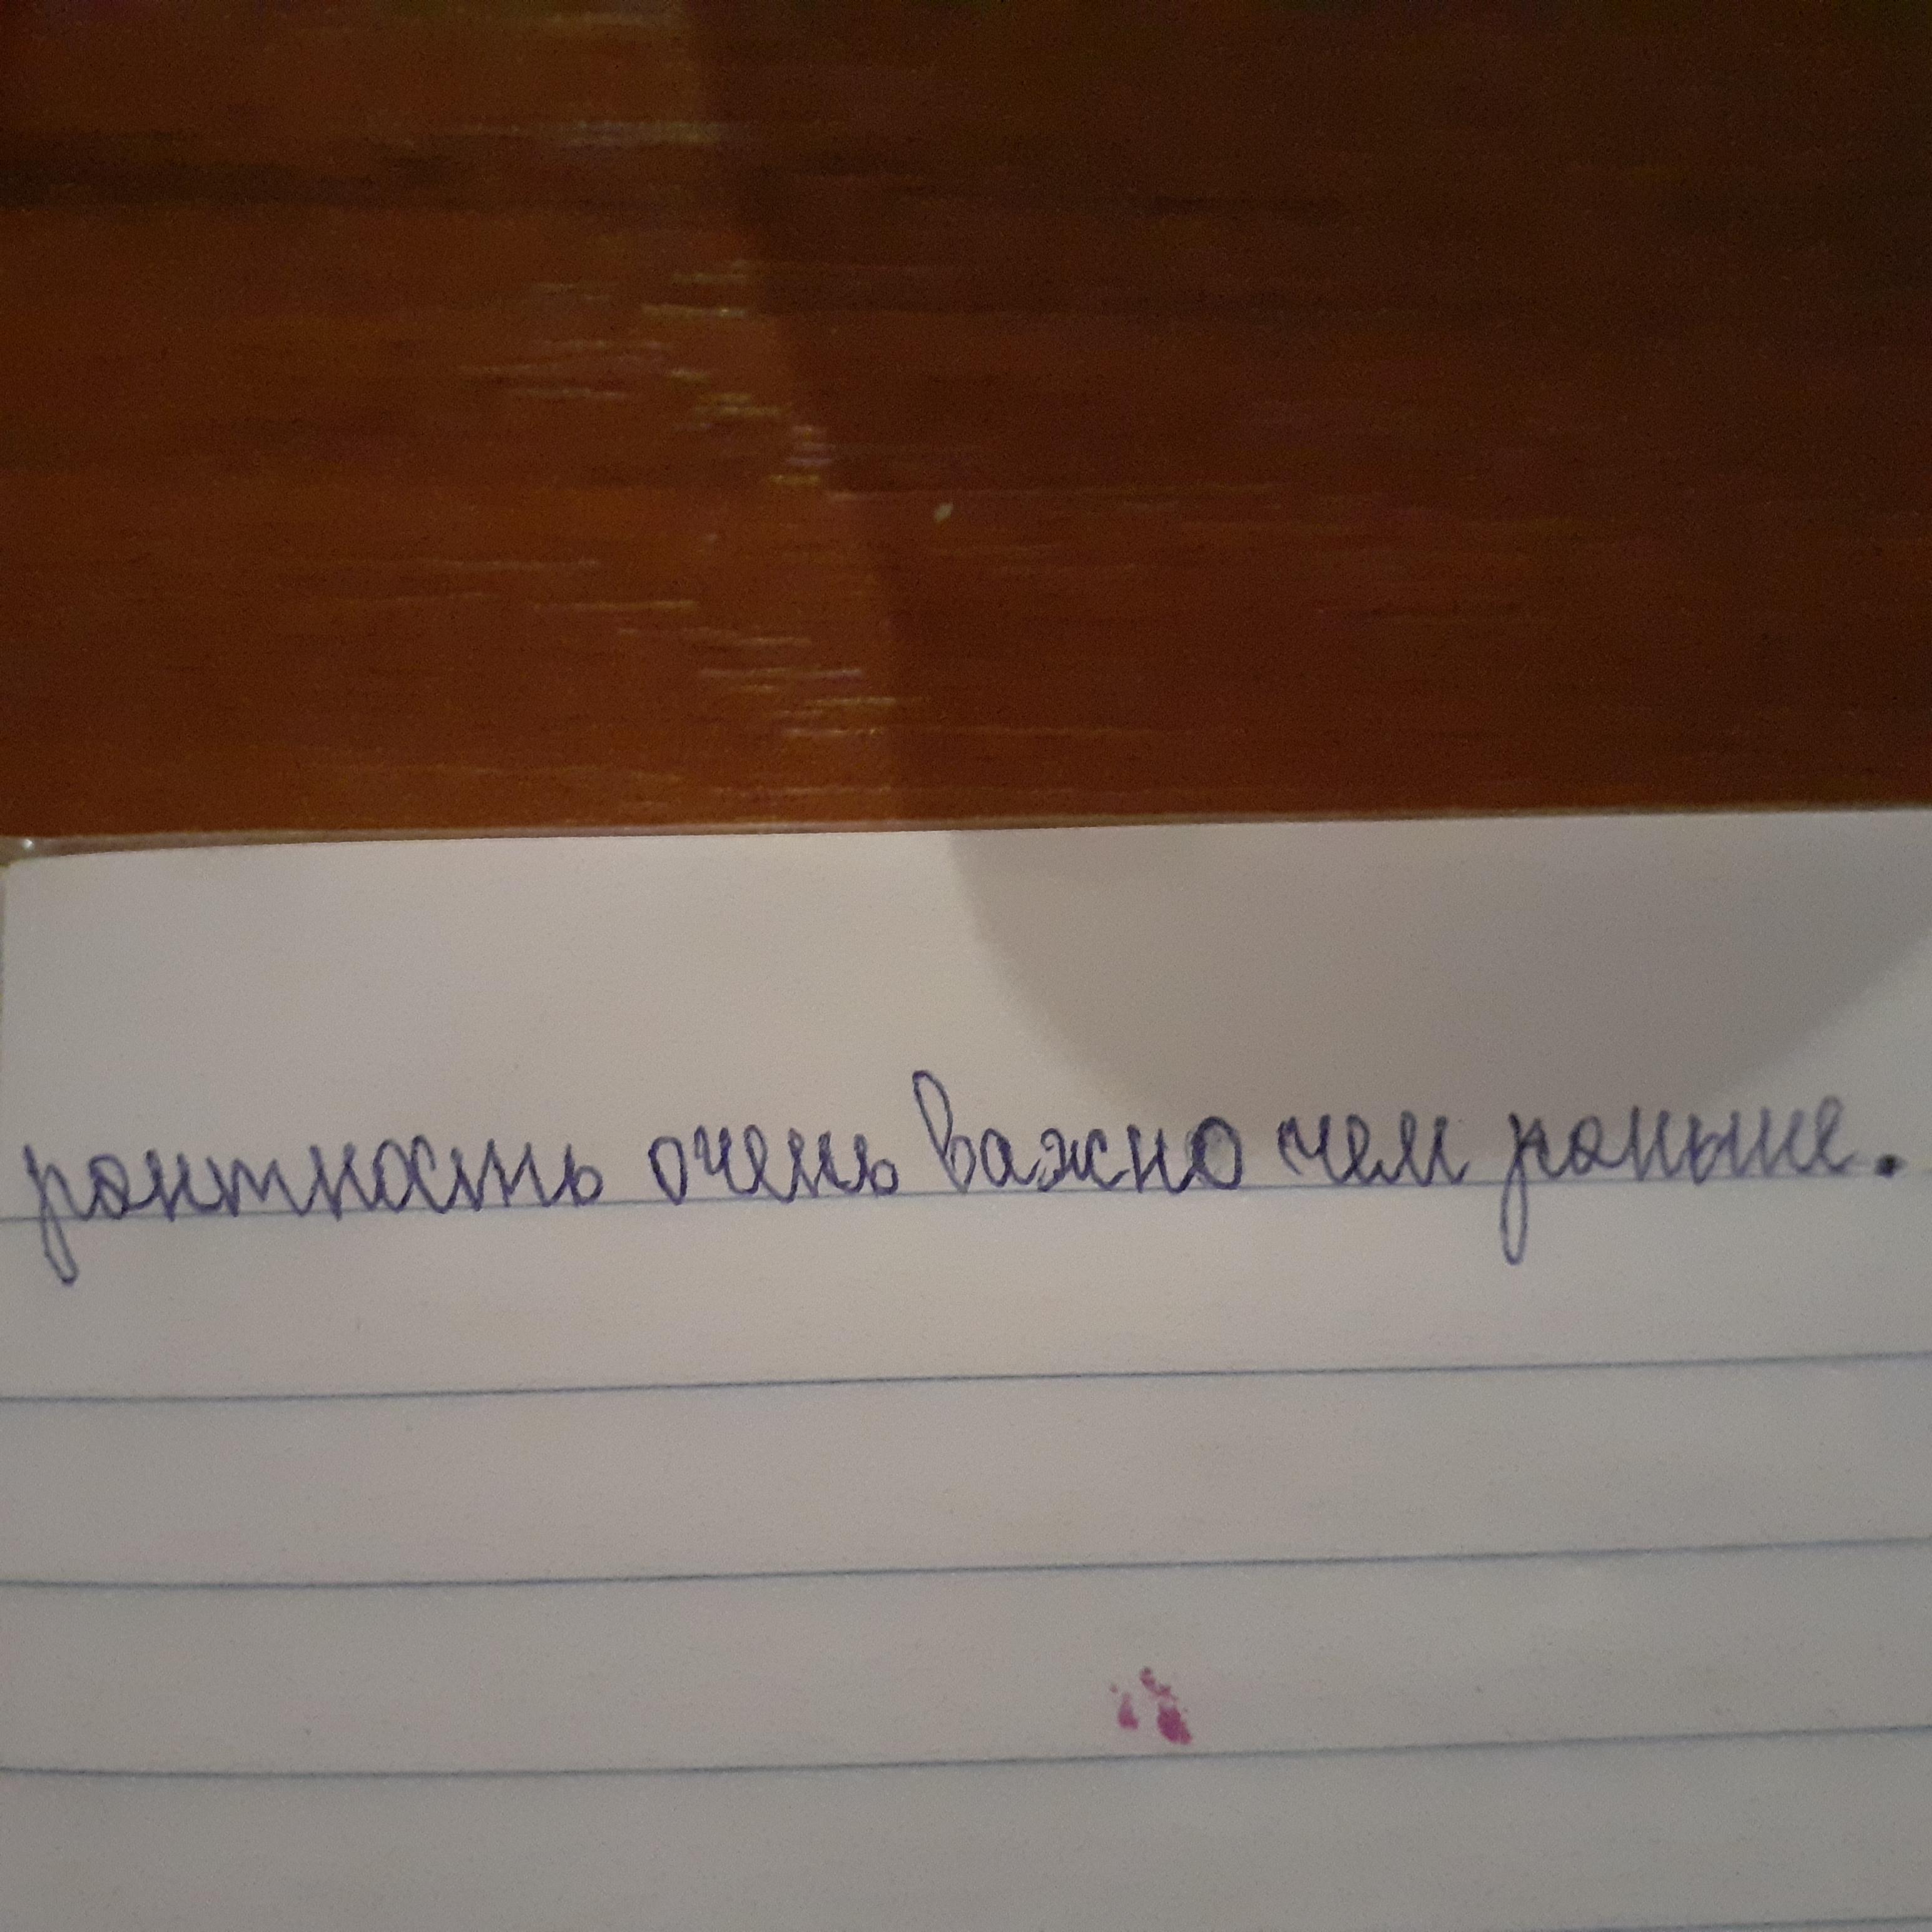 рантность очень важно чем раньше.